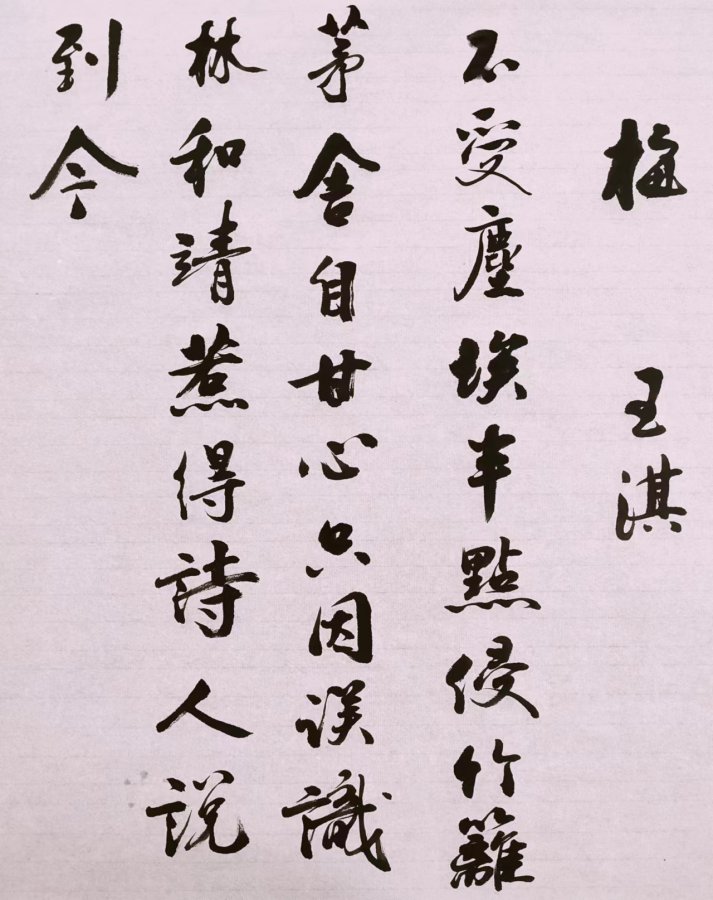 梅 王淇
不受塵埃半點侵竹籬
茅舍自甘心只因误識
林和靖惹得詩人説
到今